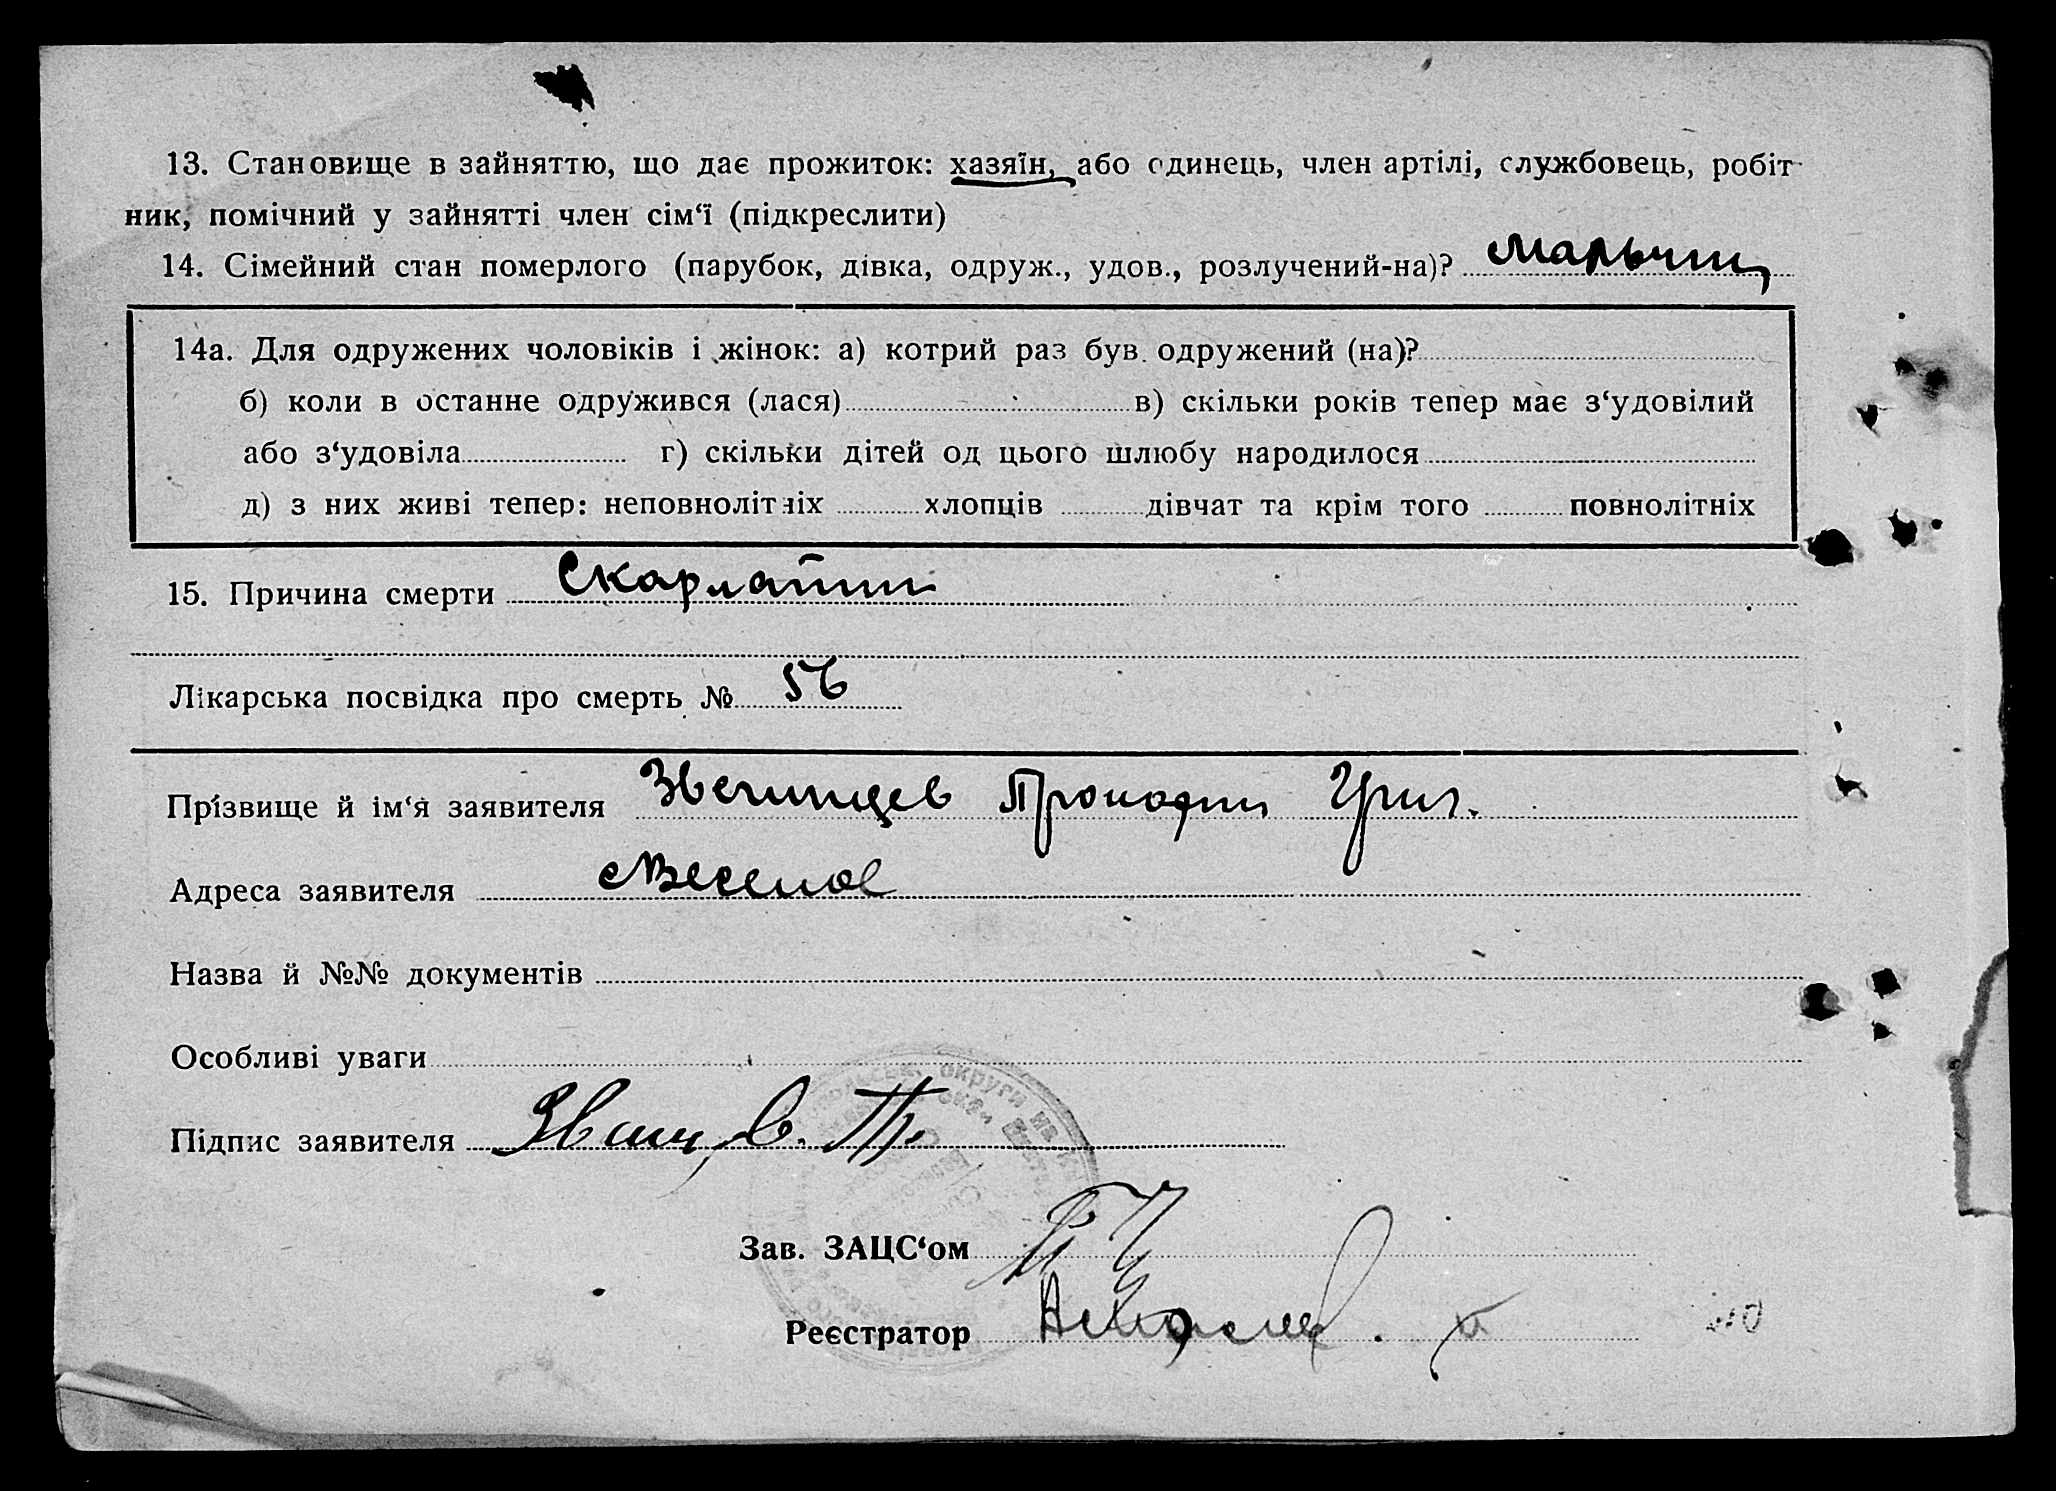 13. Становище в зайняттю, що дає прожиток: хазяїн, або одинець, член артілі, службовець, робіт-
ник, помічний у зайнятті член сім‘ї (підкреслити)
14. Сімейний стан померлого (парубок, дівка, одруж., удов., розлучений-на)? Мальчик
14а. Для одружених чоловіків і жінок: а) котрий раз був одружений (на)?
б) коли в останне одружився (лася) в) скільки років тепер має з‘удовілий
або з‘удовіла г) скільки дітей од цього шлюбу народилося
д) з них живі тепер: неповнолітніх хлопців дівчат та крім того повнолітніх
15. Причина смерти Скарлатин
Лікарська посвідка про смерть № 56
Прізвище й ім‘я заявителя Звегинцев Прокофий Григ.
Адреса заявителя Веселое
Назва й №№ документів
Особливі уваги
Підпис заявителя
округи
Зав. ЗАЦС‘ом
Реєстратор